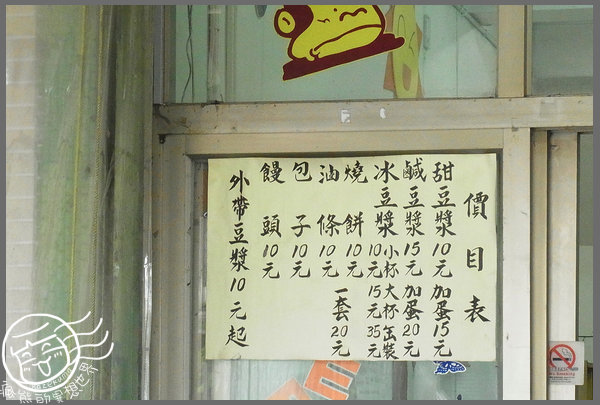 價目表
甜豆漿10元 加蛋15元
鹹豆漿15元 加蛋20元
冰豆漿小杯10元 大杯15元 缶裝35元
燒餅10元
油條10元 一套20元
包子10元
饅頭10元
外帶豆漿10元起
瘋熊的冥想世界